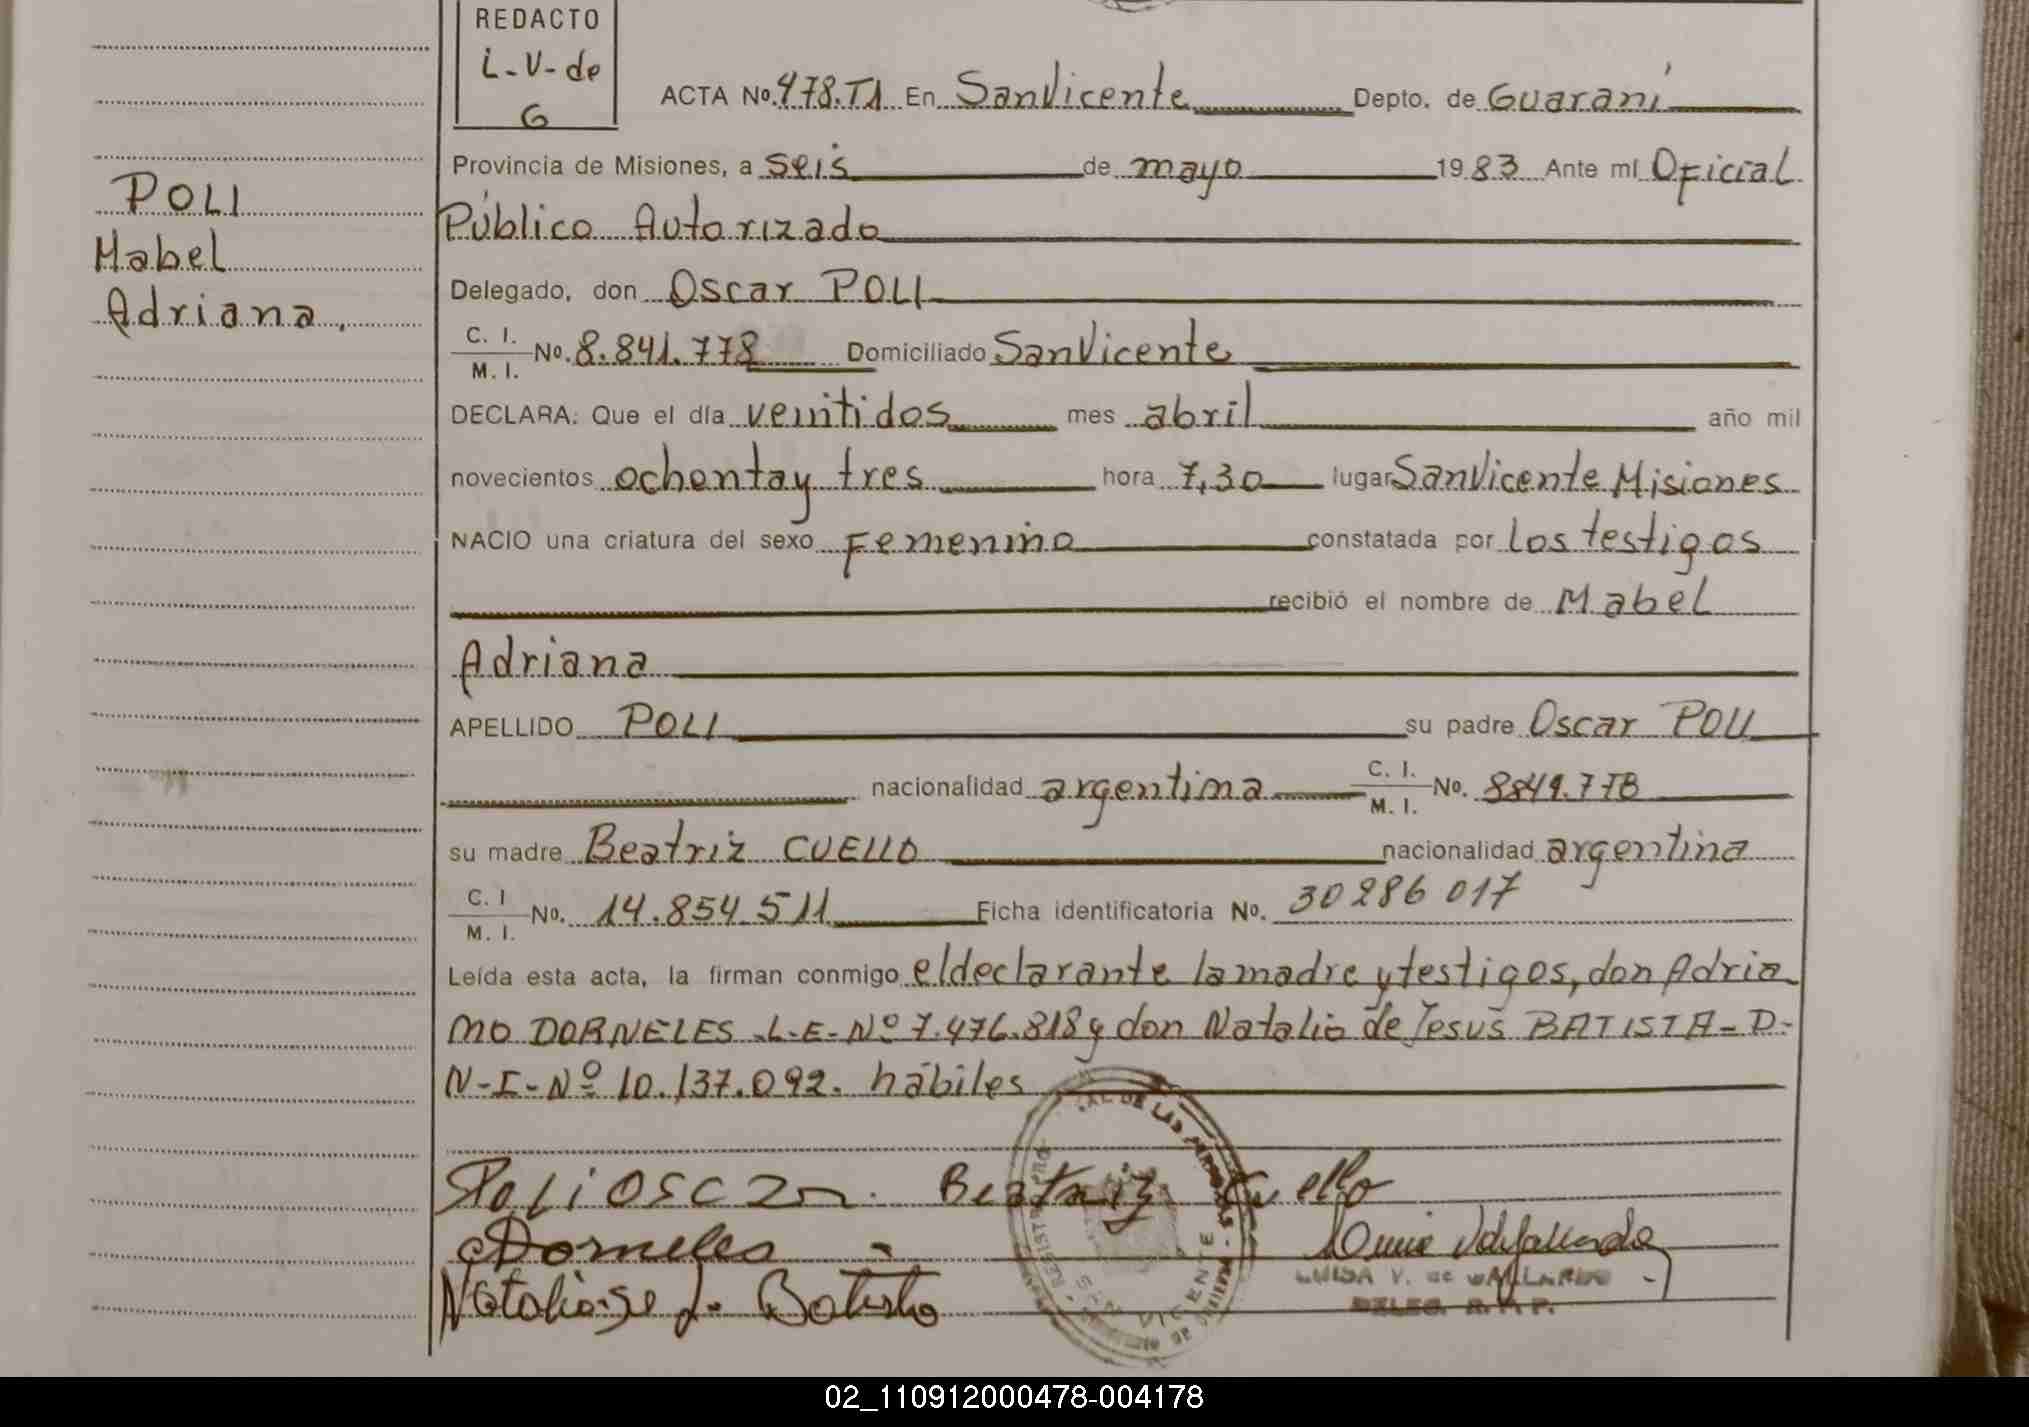 REDACTO
L-V-de
G
ACTA No. 478.T1 En San Vicente Depto. de Guaraní
Provincia de Misiones, a seis de mayo 1983 Ante mí Oficial
Público Autorizado
POLI
Mabel
Adriana.
Delegado, don Oscar POLI
C. I.
M. I. No. 8.841.778 Domiciliado San Vicente
DECLARA: Que el día veintidos mes abril año mil
novecientos ochenta y tres hora 7,30 lugar San Vicente Misiones
NACIO una criatura del sexo Femenino constatada por los testigos
recibió el nombre de Mabel
Adriana
APELLIDO POLI su padre Oscar POLI
nacionalidad argentina C. I.
M. I. No. 8841.778
su madre Beatriz CUELLO nacionalidad argentina
C. I
M. I. No. 14.854.511 Ficha identificatoria No. 30286017
Leída esta acta, la firman conmigo el declarante la madre y testigos, don Adria
no DORNELES -L-E-Nº 7.476.818 y don Natalio de Jesús BATISTA-D-
N-I-Nº 10.137.092. hábiles
Poli Oscar. Beatriz Cuello
Dorneles
Natalio de J. Batista
LUISA V. de GALLARDO
DELEG. R. P. P.
SAN VICENTE
02_110912000478-004178